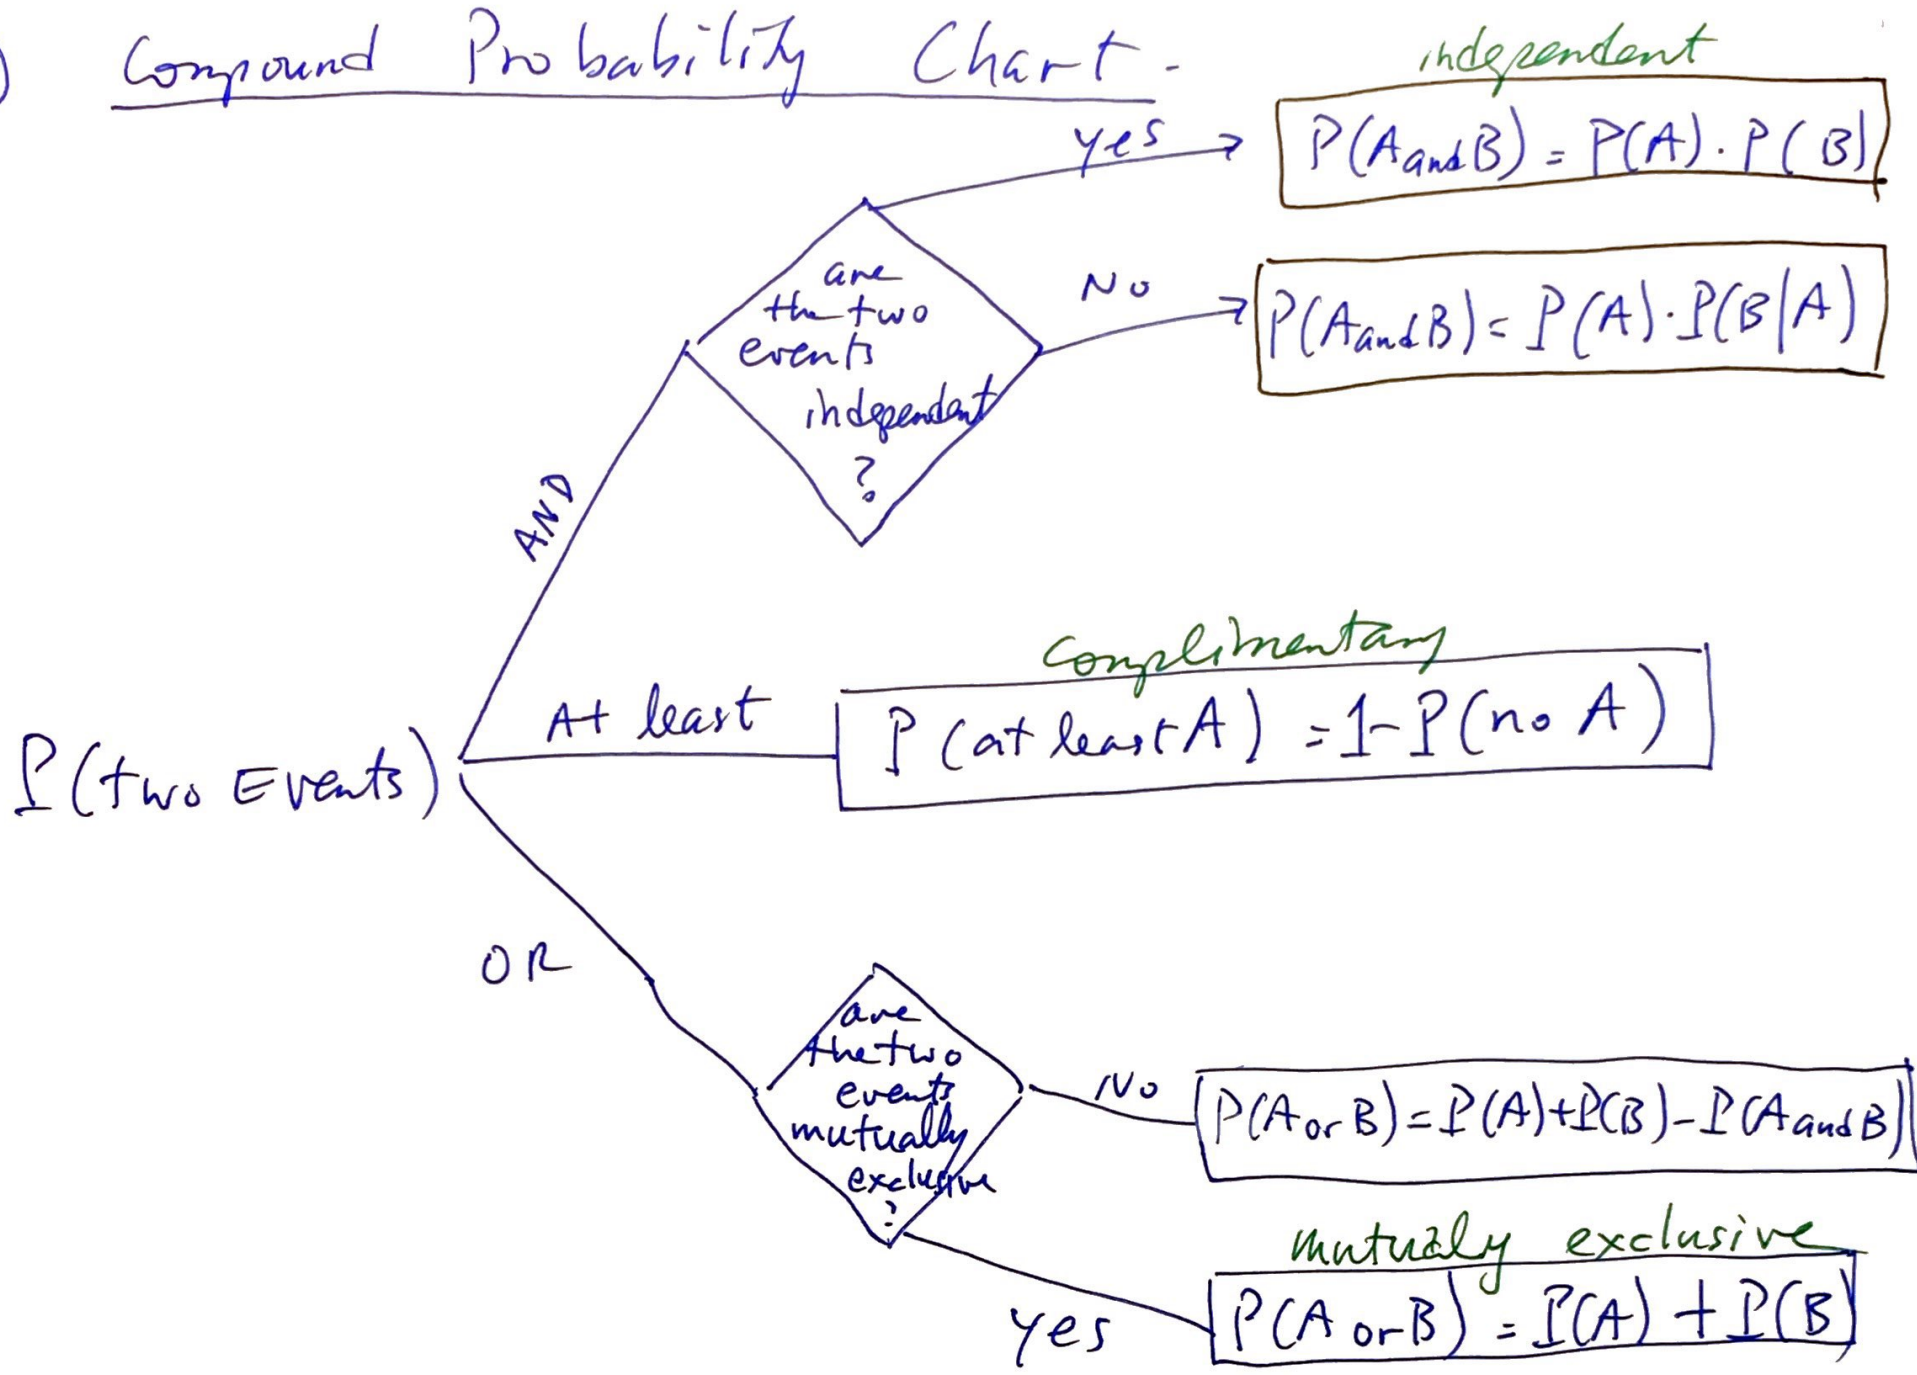 ) Compound Probability Chart.
independent
yes
P(A and B) = P(A) . P(B)
are
the two
events
independent
?
No
P(A and B) = P(A) . P(B|A)
AND
complimentary
At least
P(at least A) = 1 - P(no A)
P(two Events)
OR
are
the two
events
mutually
exclusive
?
No
P(A or B) = P(A) + P(B) - P(A and B)
mutualy exclusive
yes
P(A or B) = P(A) + P(B)